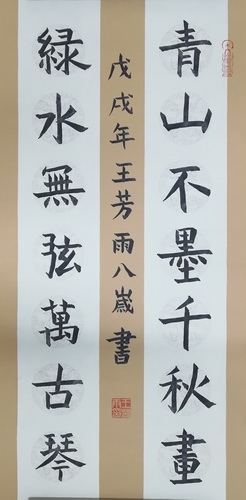 青山不墨千秋畫
綠水無弦萬古琴
戊戌年王芳雨八歲書